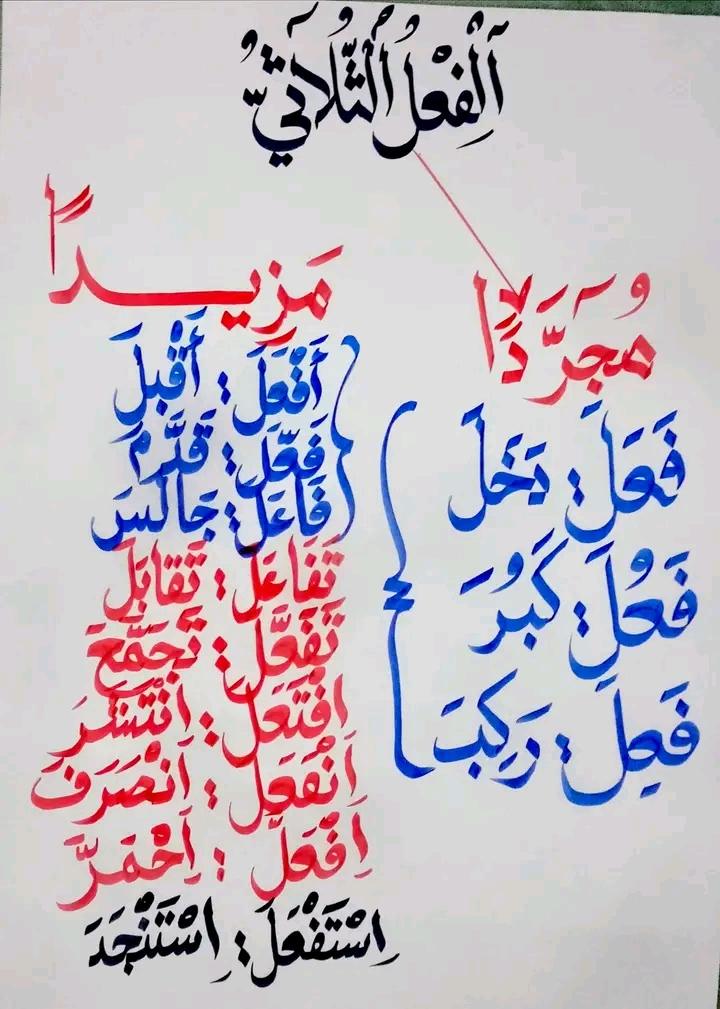 اَلْفِعْلُ الثُّلَاثِيُّ
مُجَرَّدًا
فَعَلَ: دَخَلَ
فَعُلَ: كَبُرَ
فَعِلَ: رَكِبَ
مَزِيدًا
أَفْعَلَ: أَقْبَلَ
فَعَّلَ: قَدَّمَ
فَاعَلَ: جَالَسَ
تَفَاعَلَ: تَقَابَلَ
تَفَعَّلَ: تَجَمَّعَ
اِفْتَعَلَ: اِنْتَشَرَ
اِنْفَعَلَ: اِنْصَرَفَ
اِفْعَلَّ: اِحْمَرَّ
اِسْتَفْعَلَ: اِسْتَنْجَدَ